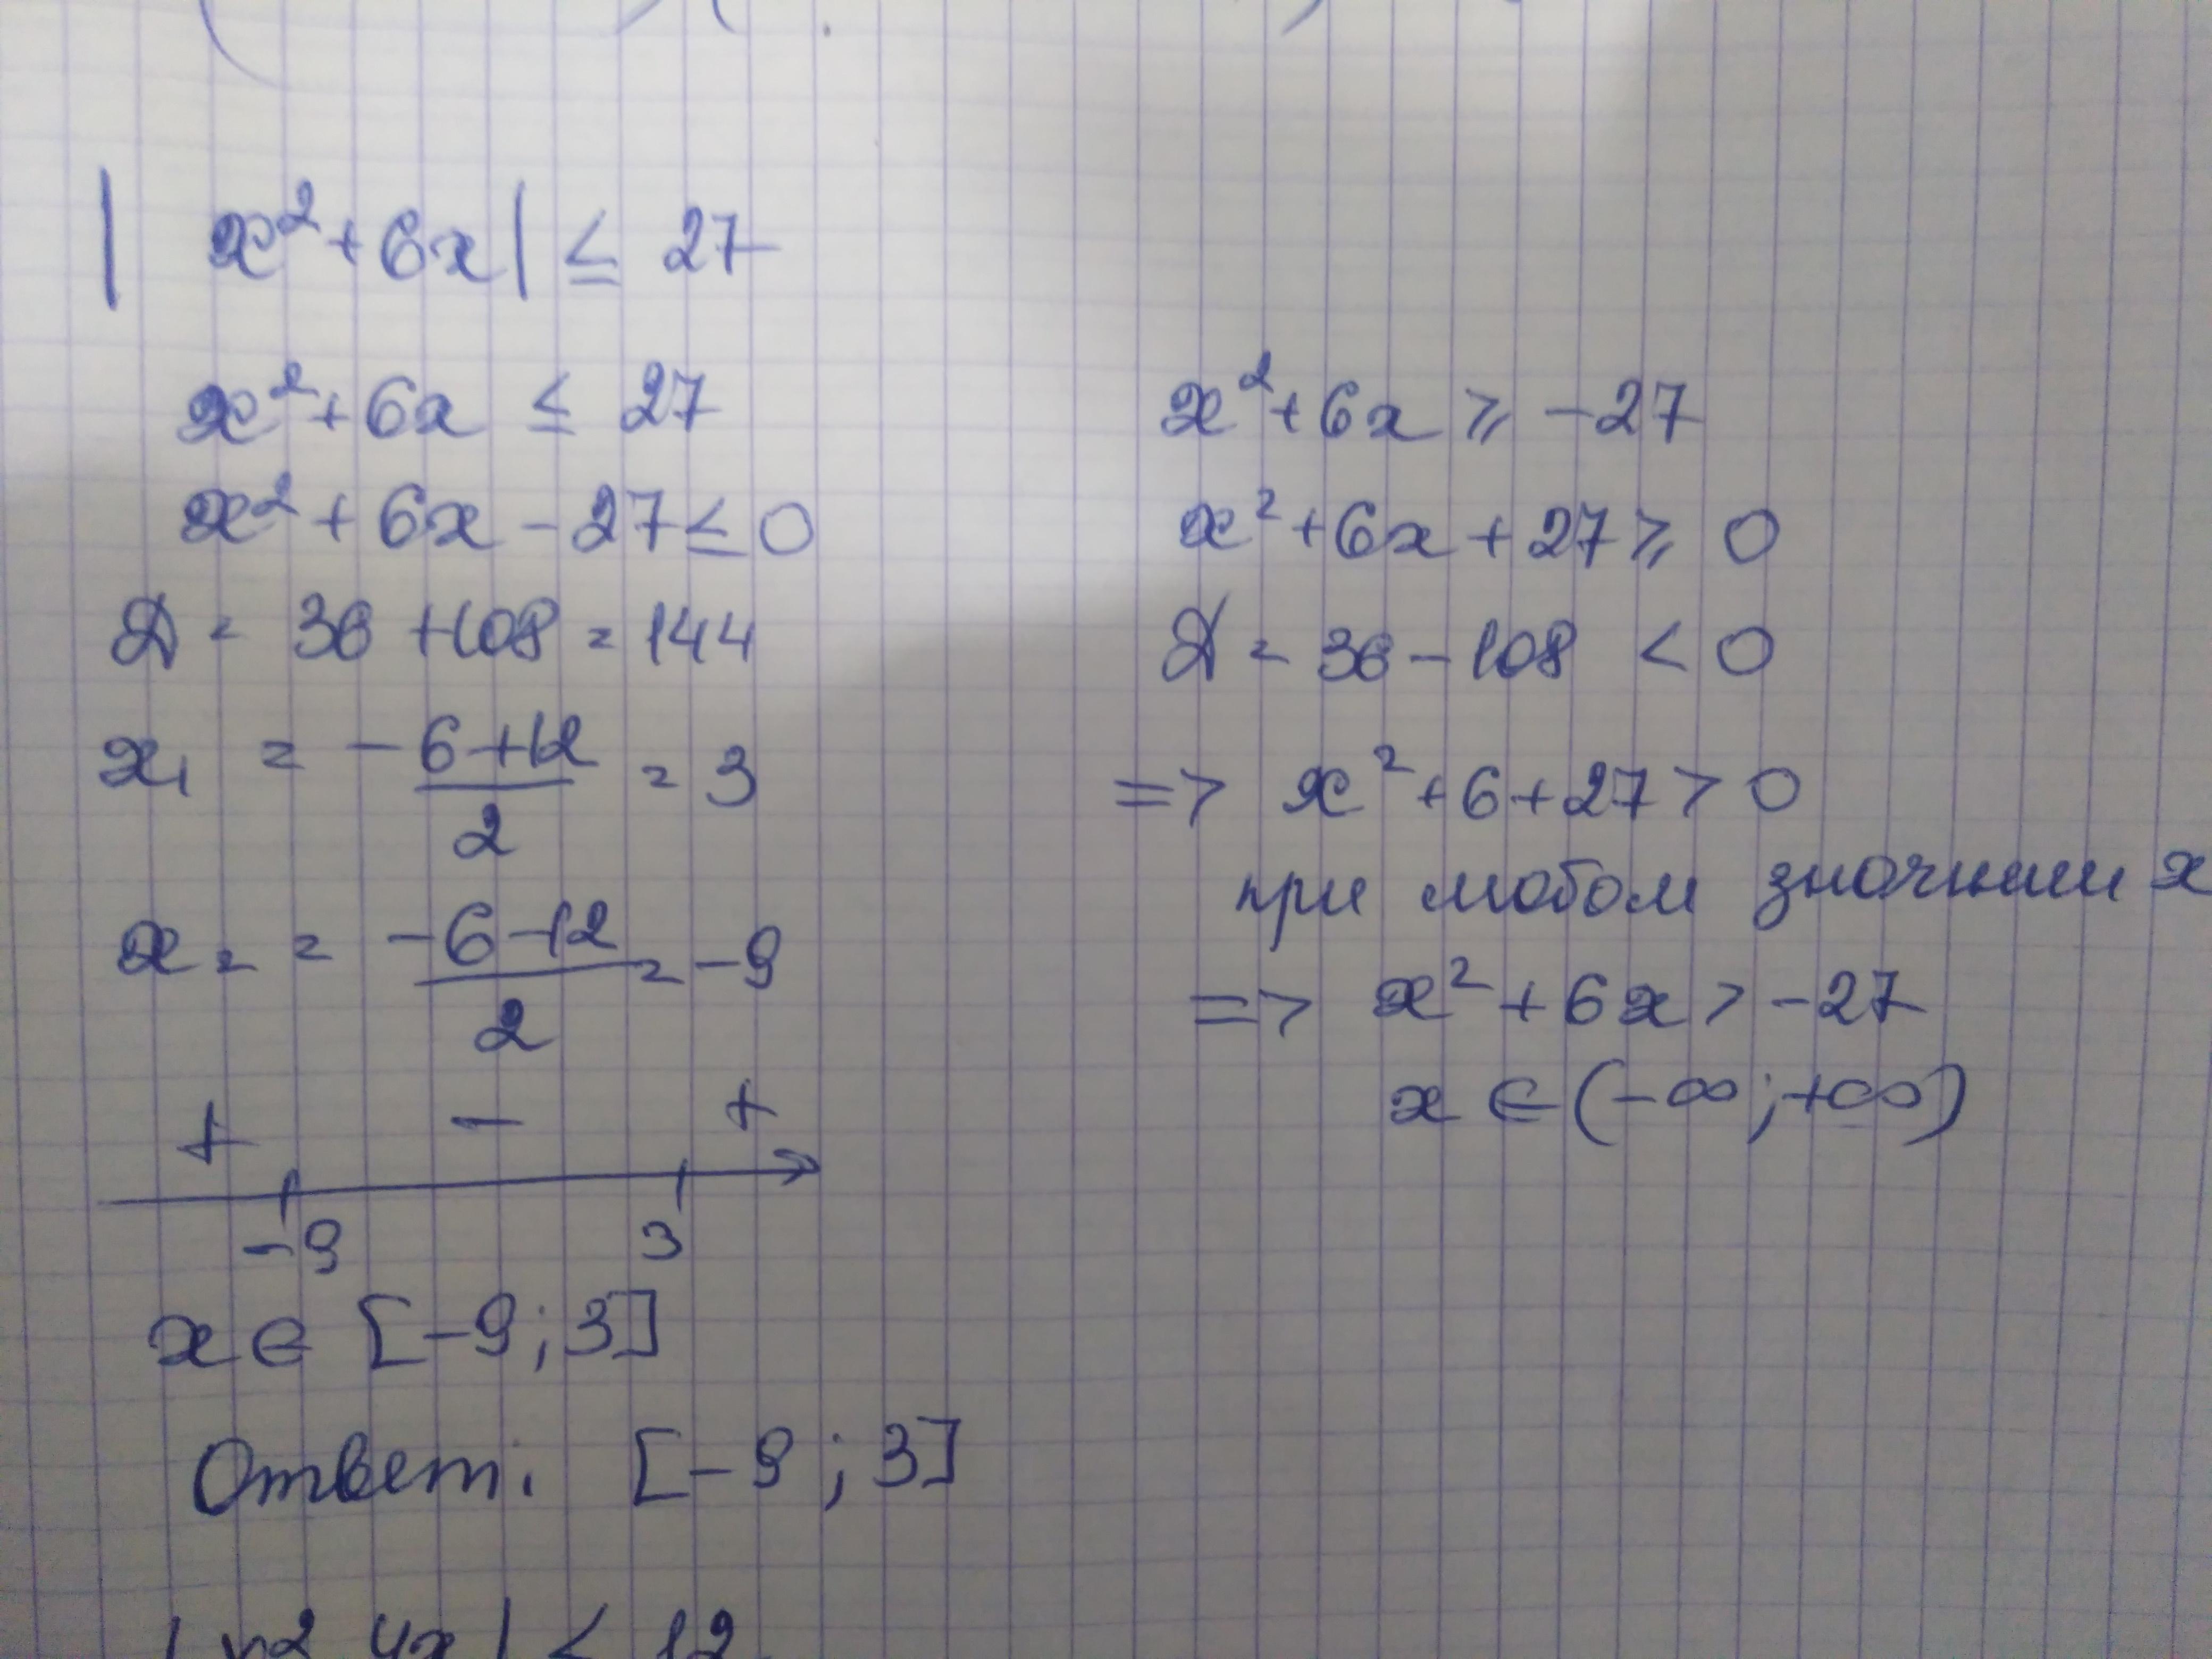 | x² + 6x | ≤ 27
x² + 6x ≤ 27
x² + 6x - 27 ≤ 0
D = 36 + 108 = 144
x₁ = (-6+12)/2 = 3
x₂ = (-6-12)/2 = -9
+ - +
-9 3
x ∈ [-9; 3]
Ответ: [-9; 3]
x² + 6x ⩾ -27
x² + 6x + 27 ⩾ 0
D = 36 - 108 < 0
=> x² + 6 + 27 > 0
при любом значении x
=> x² + 6x > -27
x ∈ (-∞; +∞)